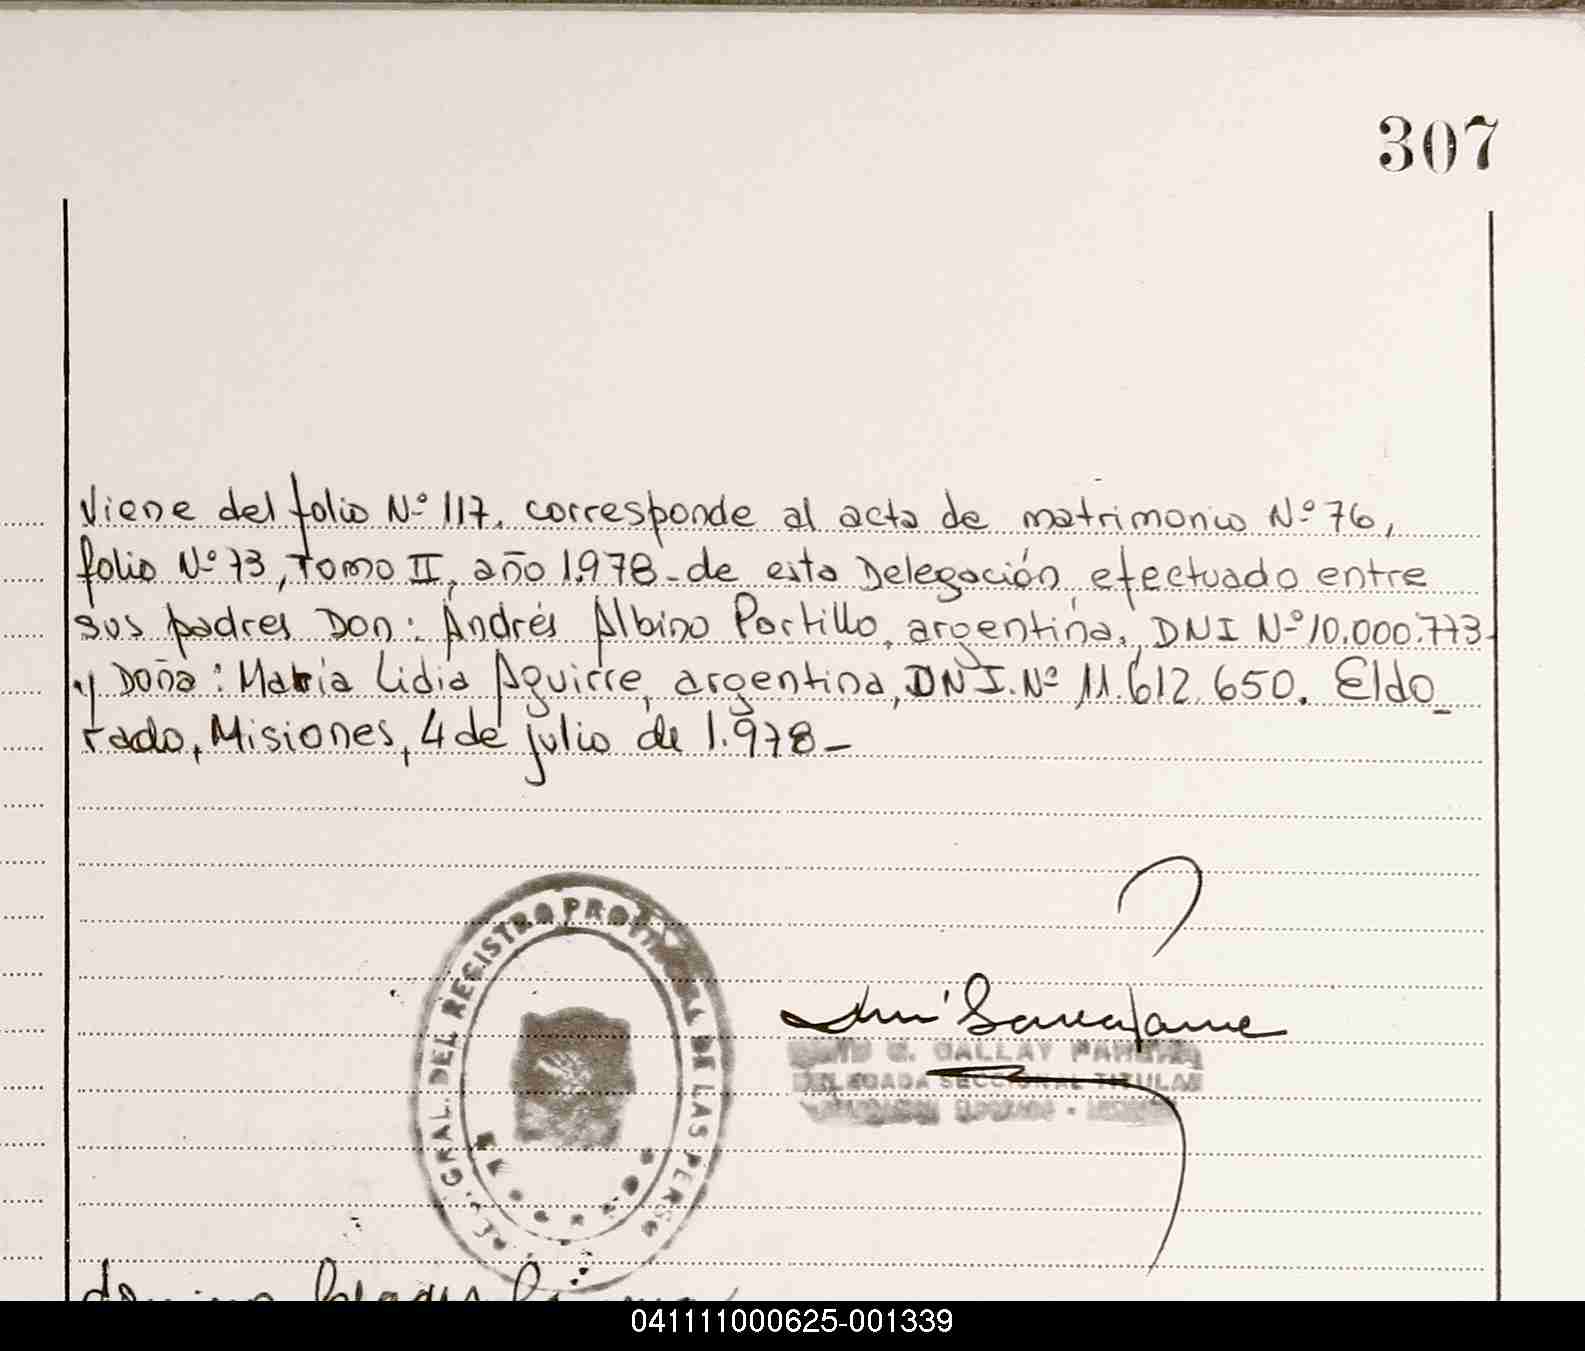 307
Viene del folio Nº 117, corresponde al acta de matrimonio Nº 76,
folio Nº 73, Tomo II, año 1.978 - de esta Delegación, efectuado entre
sus padres Don: Andrés Albino Portillo, argentina, DNI Nº 10.000.773
y Doña: María Lidia Aguirre, argentina, DNI. Nº 11.612.650. Eldo_
rado, Misiones, 4 de julio de 1.978 -
GRAL. DEL REGISTRO DE LAS PERSO
GALLAY
DELEGADA SECCIONAL TITULAR
041111000625-001339